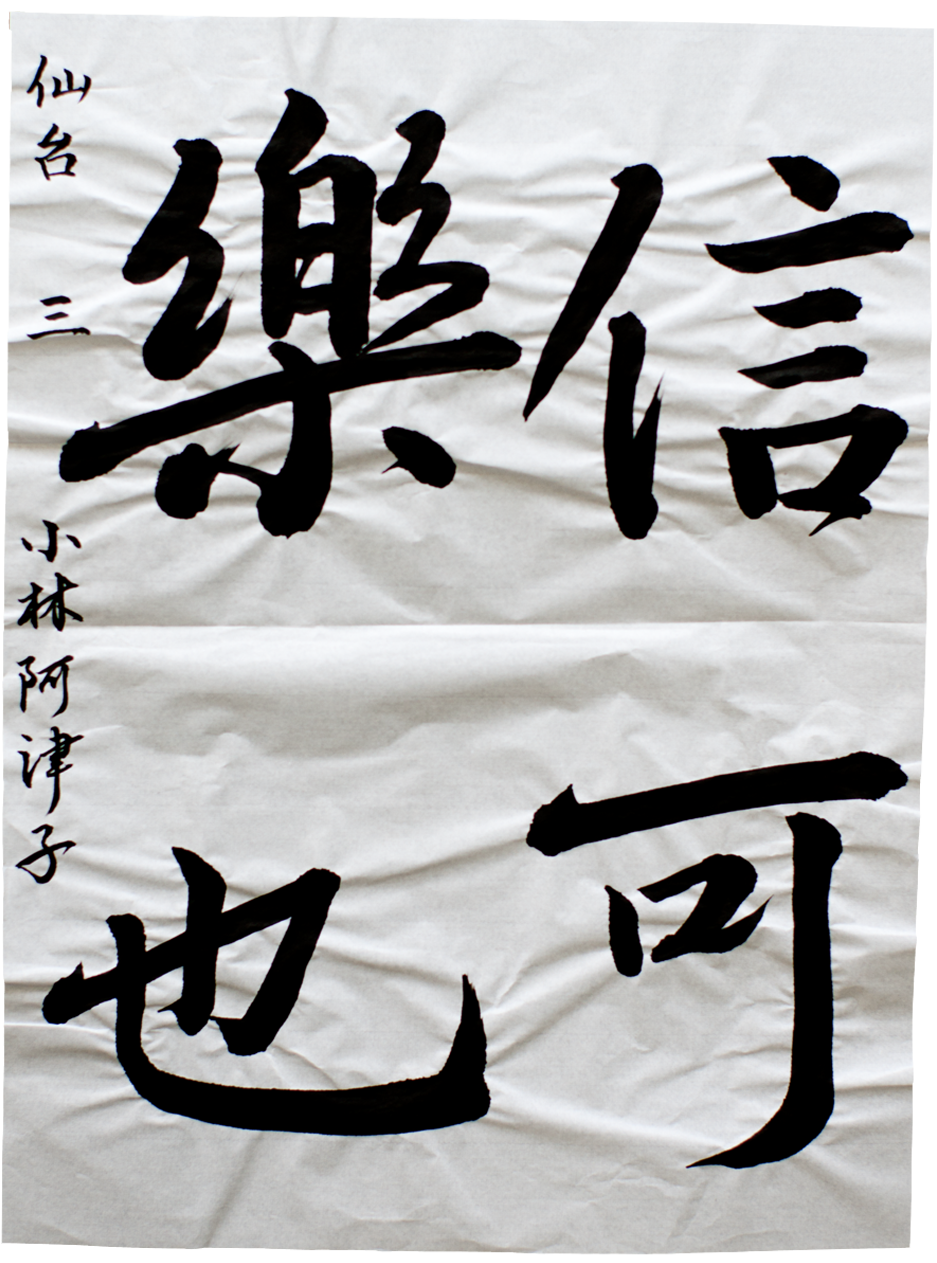 信可
樂也
仙台 三 小林阿津子